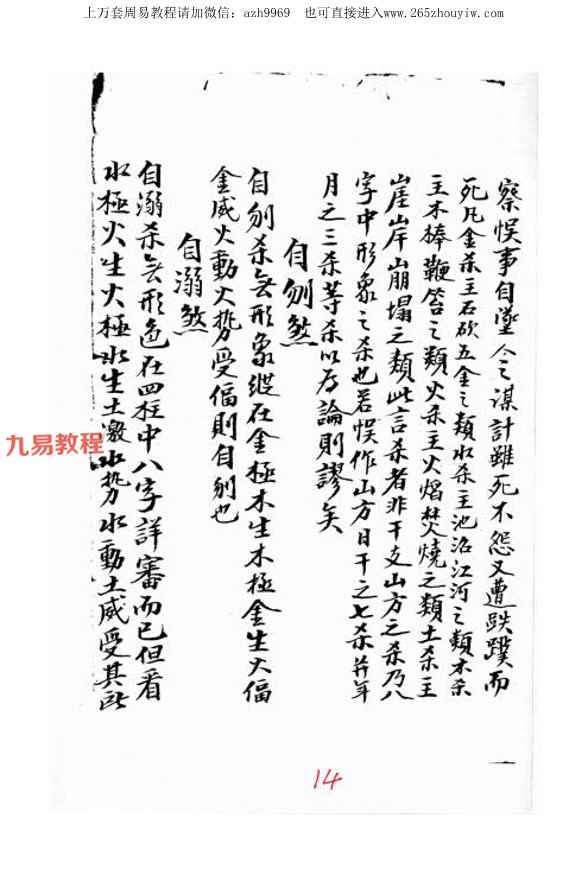 上万套周易教程请加微信：azh9969　也可直接进入www.265zhouyiw.com
察悮事自墜令之謀計雖死不怨又遭跌蹼而
死凡金杀主石砍五金之類水杀主池沼江河之類木杀
主木棒鞭笞之類火杀主火熖焚燒之類土杀主
崖岸崩塌之類此言杀者非干支山方之杀乃八
字中形象之杀也若悮作山方日干之七杀并年
月之三杀等杀以为論則謬矣
自刎煞
自刎杀無形象縱在金極木生木極金生火偪
金威火動火势受偪則自刎也
自溺煞
自溺杀無形色在四柱中八字詳審而已但看
水極火生火極水生土激水势水動土威受其
九易教程
14